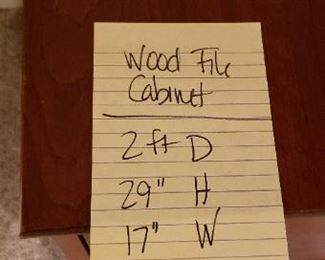 Wood File
Cabinet
2 ft D
29" H
17" W